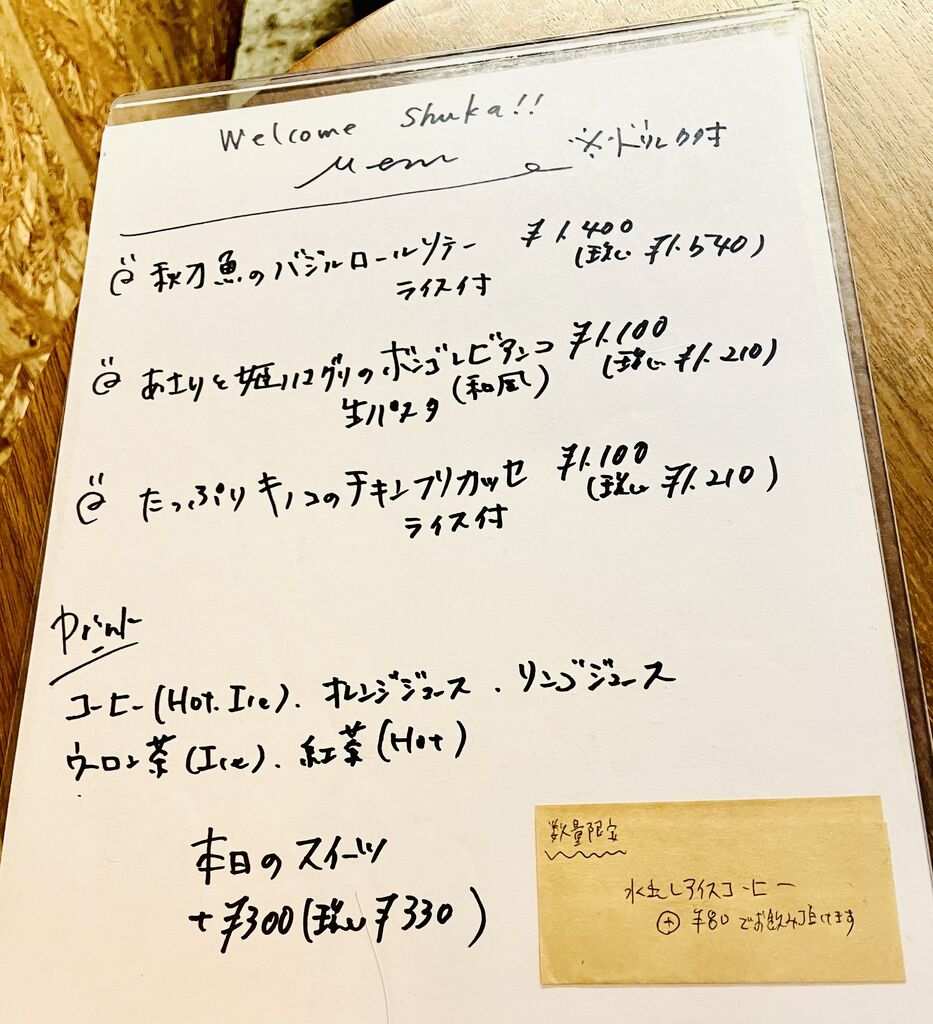 Welcome Shuka!!
Menu
※ドリンク付
秋刀魚のバジルロールソテー ¥1.400
ライス付 (税込 ¥1.540)
あさりと姫ハマグリのボンゴレビアンコ ¥1.100
生パスタ (和風) (税込 ¥1.210)
たっぷりキノコのチキンフリカッセ ¥1.100
ライス付 (税込 ¥1.210)
Drink
コーヒー(Hot.Ice)、オレンジジュース、リンゴジュース
ウーロン茶(Ice)、紅茶(Hot)
本日のスイーツ
+¥300(税込¥330)
数量限定
水出しアイスコーヒー
⊕ ¥80でお飲み頂けます